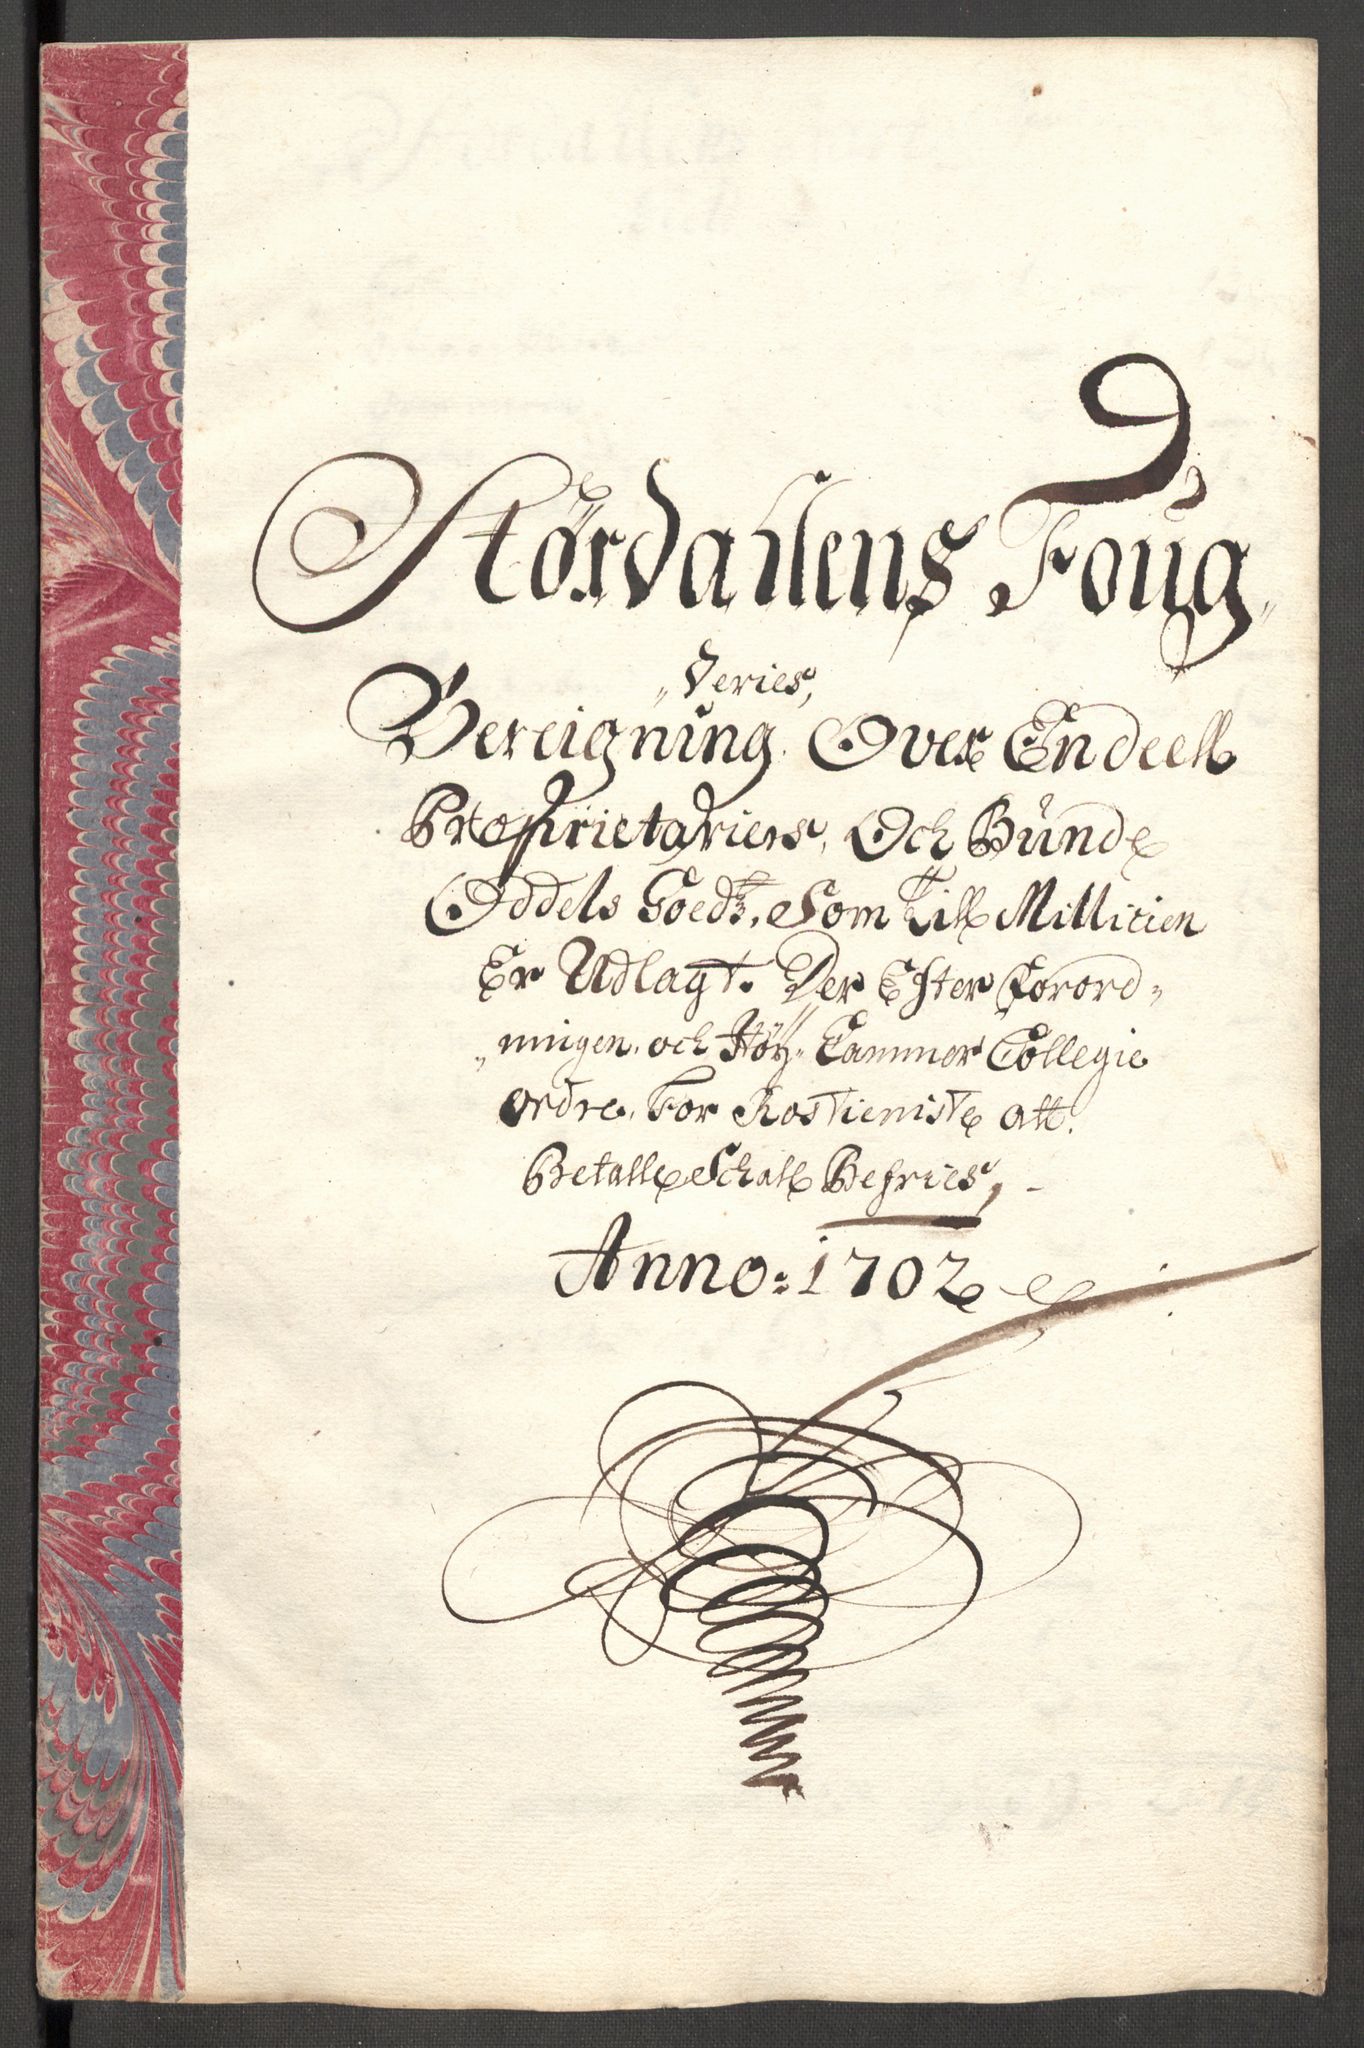 Størdallens Foug„
„deries,
Bereigning Over Endeell
Proprietariers, Och Bunde
Oddels Goedtz, Som Till Millitien
Er Udlagt. Der Efter Forord„
„ningen, och Høy„ Cammer Collegie
ordre, For Rostieniste att
Betalle Schall Befries,
Anno: 1702